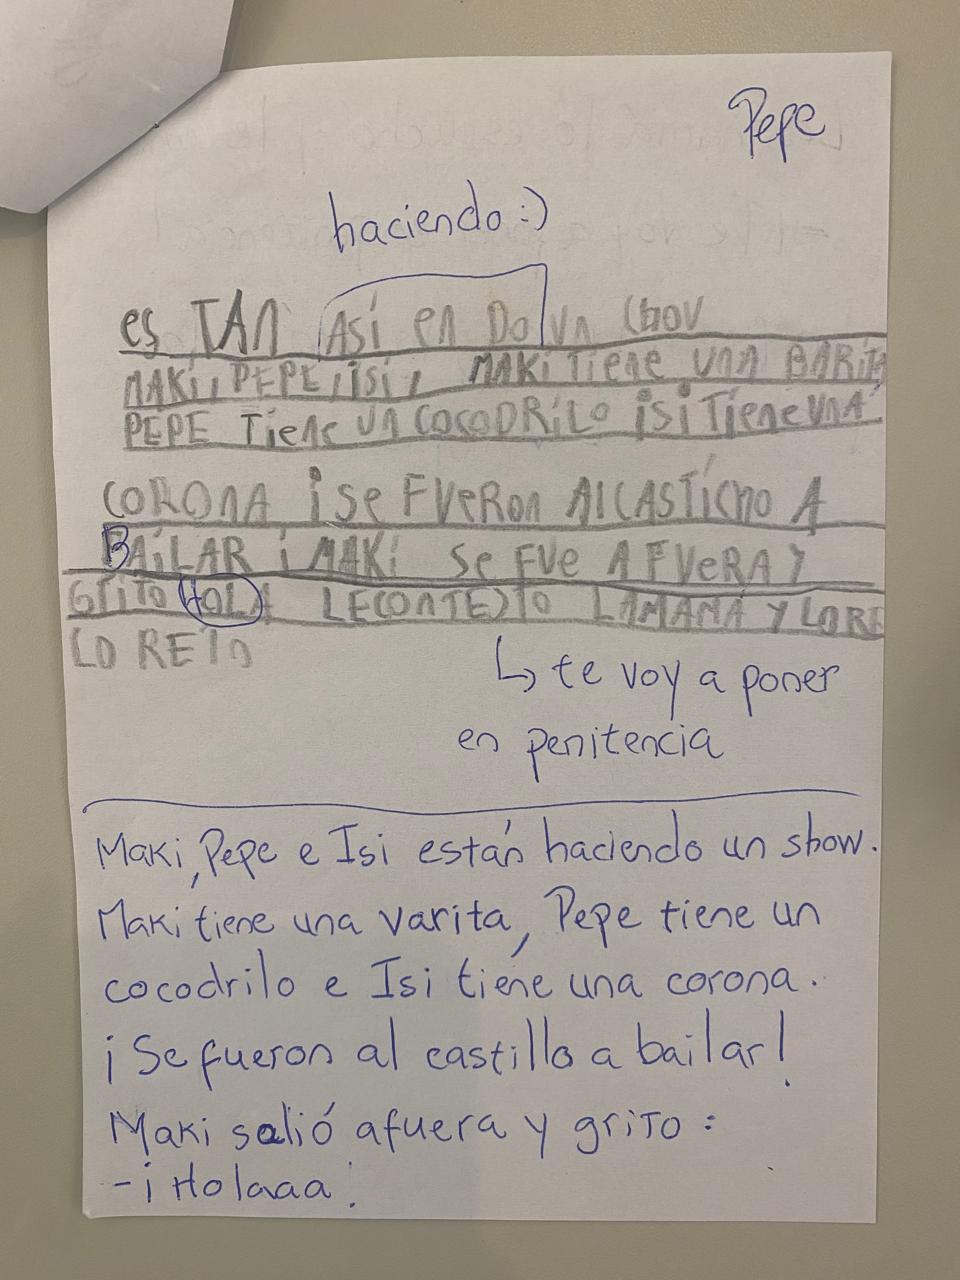 Pepe
haciendo :)
es TAN ASÍ en Do Un Chou
MAKI, PEPE, ISI, MAKI TIENE UNA BARITA
PEPE TIENE UN COCODRILO ISI TIENE UNA
CORONA I SE FUERON AL CASTICHO A
BAILAR I MAKI SE FUE A FUERA Y
GRITO HOLA LE CONTE TO LA MAMA Y LORE
LO RETO
↳ te voy a poner
en penitencia
Maki, Pepe e Isi están haciendo un show.
Maki tiene una varita, Pepe tiene un
cocodrilo e Isi tiene una corona.
¡Se fueron al castillo a bailar!
Maki salió afuera y grito:
-¡Holaaa!